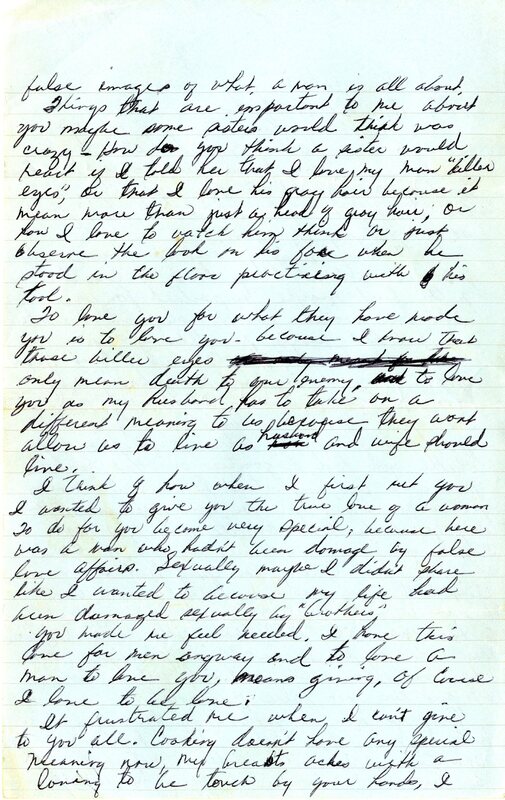 false images of what a man is all about.
Things that are important to me about
you maybe some sisters would think was
crazy - How do you think a sister would
react if I told her that I love my man "killer
eyes", or that I love his gray hair because it
mean more than just a head of gray hair, or
how I love to watch him think or just
observe the look on his face when he
stood in the floor practicing with his
tool.
To love you for what they have made
you is to love you - because I know that
those killer eyes
only mean death to your enemy, to love
you as my husband, has to take on a
different meaning to us because they wont
allow us to live as husband and wife should
live.
I think of how when I first met you
I wanted to give you the true love of a woman
To do for you became very special, because here
was a man who hadn't been damage by false
love affairs. Sexually maybe I didn't share
like I wanted to because my life had
been damaged sexually by "brothers"
you made me feel needed. I have this
love for men anyway and to love a
man to love you, means giving, of course
I love to be love.
It frustrated me when I can't give
to you all. Cooking doesn't have any special
meaning now, my breasts aches with a
longing to be touch by your hands, I